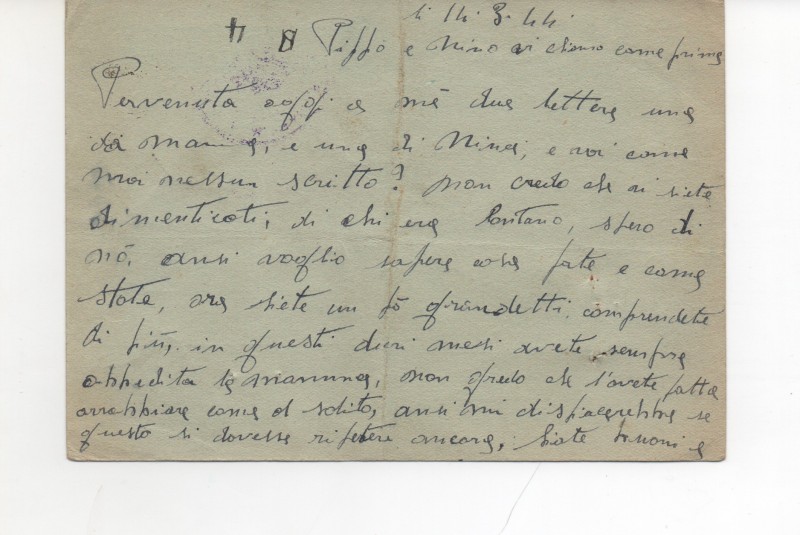 li 14. 3. 44
4 8 Piffo e Nino vi chiamo come prima
Pervenuta oggi a mè due lettere una
da mamma, e una di Nina, e voi come
mai nessun scritto? non credo che vi siete
dimenticati, di chi era lontano, spero di
nò, ansi voglio sapere cosa fate e come
state, ora siete un pò grandetti, comprendete
di più, in questi duri mesi avete sempre
obbedita la mamma, non credo che l'avete fatta
arrabbiare come al solito, ansi mi dispiacerebbe se
questo si dovesse ripetere ancora, siate buoni e